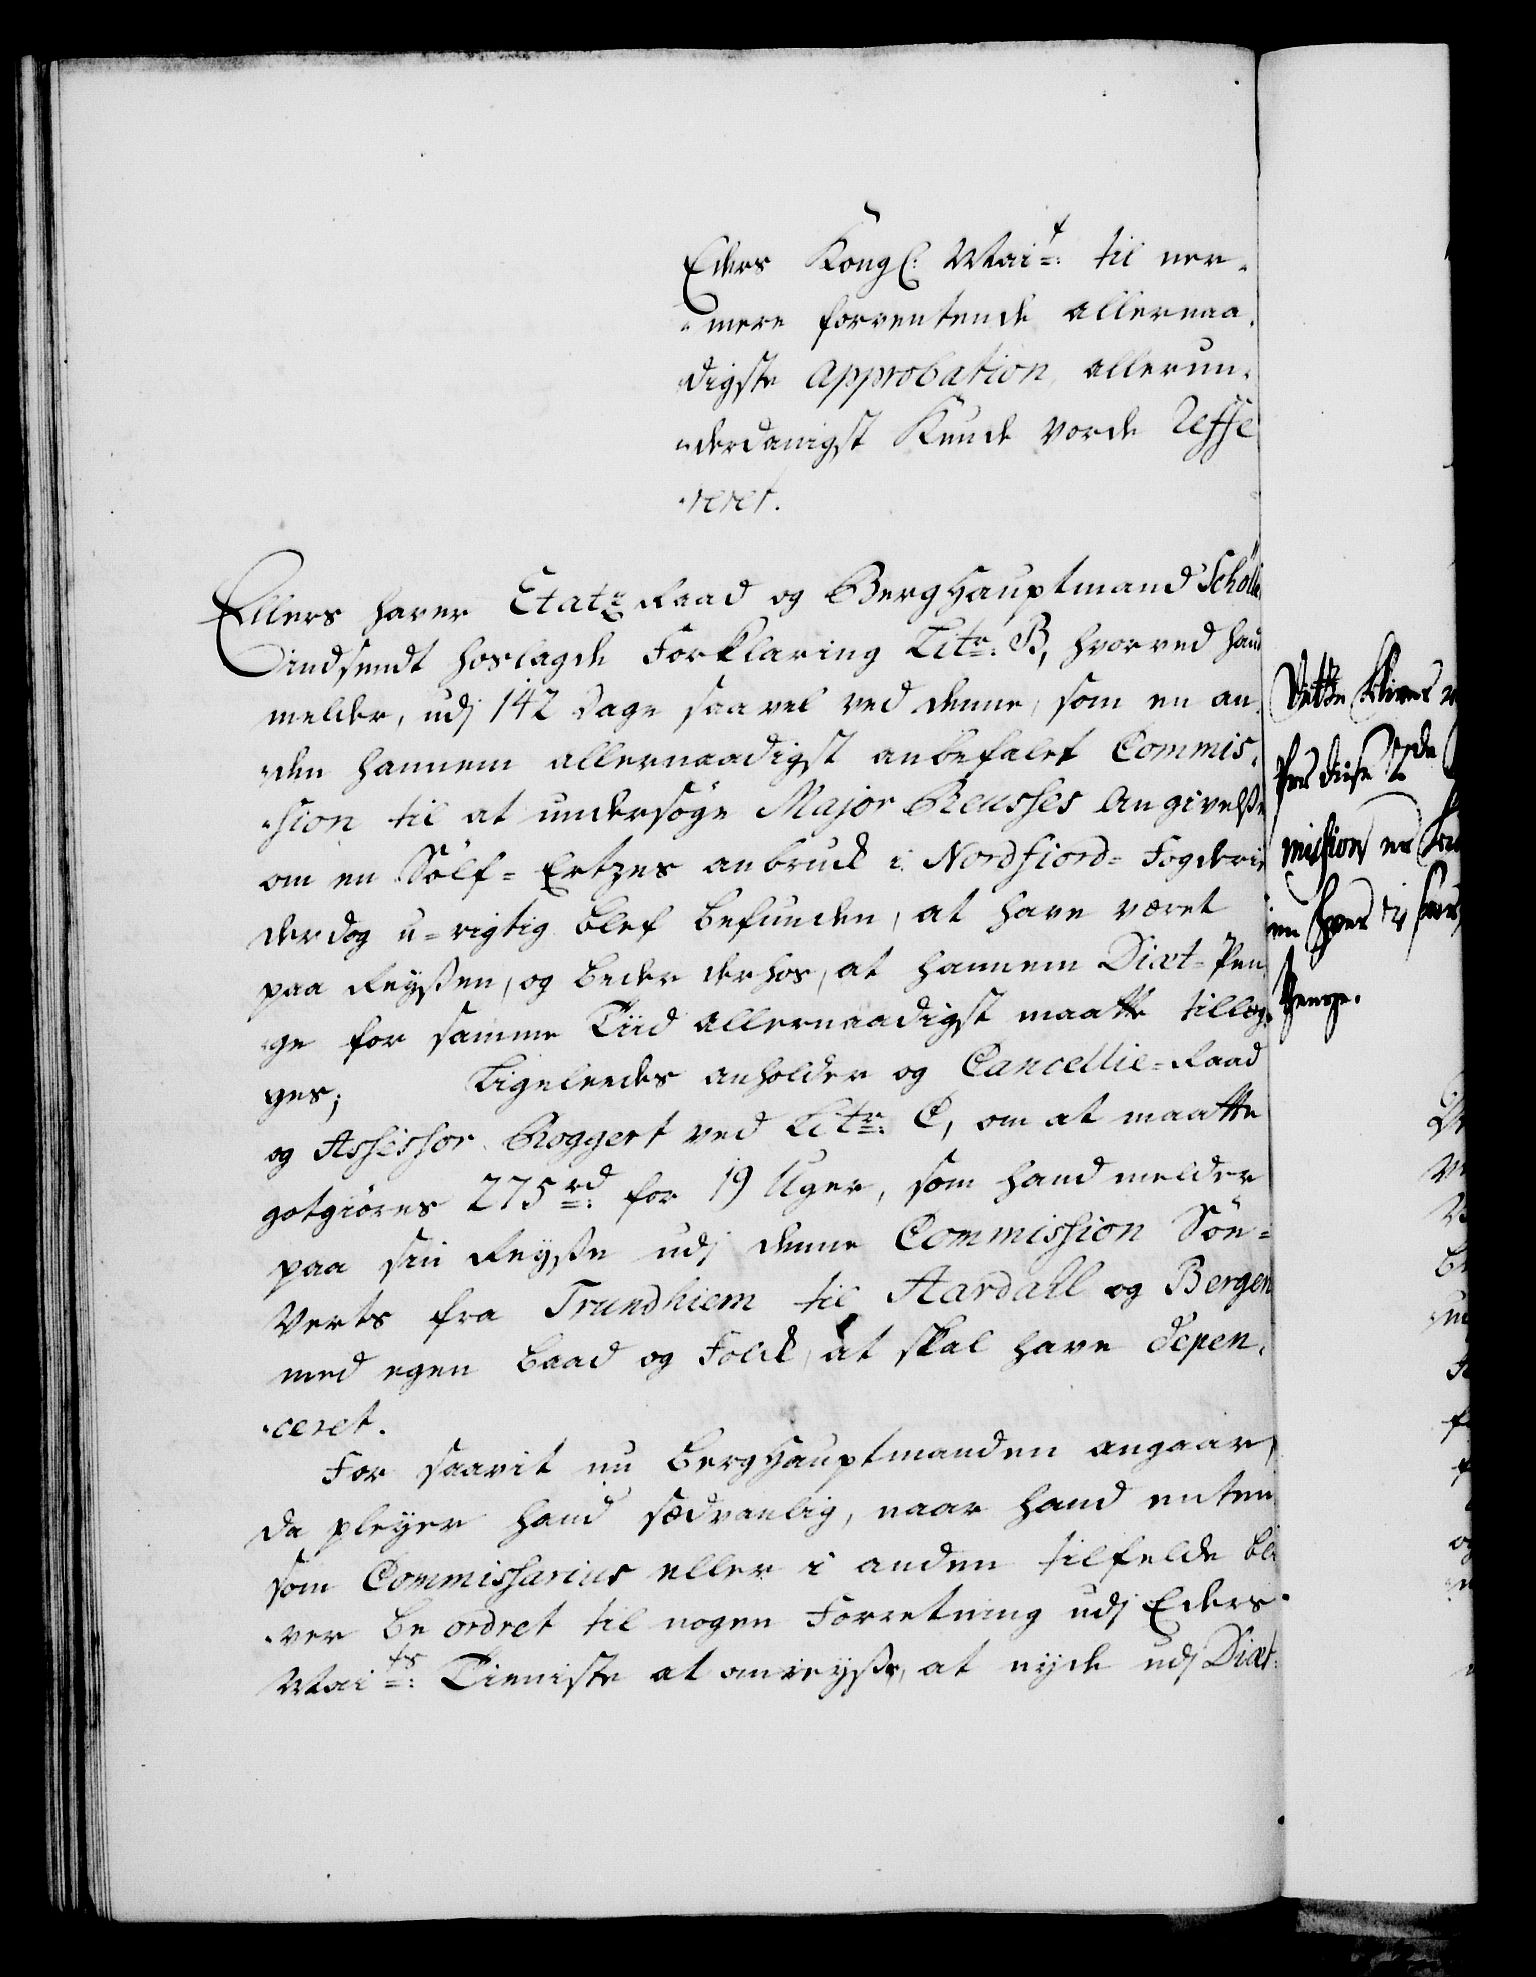 Eders Kongl: Mait: til ner-
mere forventende allernaa-
digste Approbation, allerun-
derdanigst Kunde vorde Reffe
reret.
Ellers haver Etatz Raad og BergHauptmand Schöll
indsendt hoslagde Forklaring Litr: B, hvorved hand
melder, udj 142 Dage saavel ved denne, som en an-
den hannem allernaadigst anbefalet Commis-
sion til at undersöge Major Reusses Angivelße
om en Sölf-Ertzes anbrud i Nordfiord-Fogderie
der dog u-rigtig blef befunden, at have været
paa Reyßen, og beder derhos, at hannem Diæt-Pen
ge for samme Tiid allernaadigst maatte tillæg-
ges; Ligeleedes anholder og Cancellie-Raad
og Assessor Roggert ved Litr: C, om at maatte
gotgiöres 275 rd: for 19 Uger, som hand melder
paa sin Reyße udj denne Commission Söe-
Verts fra Trundhiem til Aardall og Bergen
med egen Baad og Folck, at skal have depen-
ceret.
For saavit nu BergHauptmanden angaar,
da pleyer hand sædvanlig, naar hand enten
som Commissarius eller i anden tilfelde bli
ver beordret til nogen Forretning udj Eders
Maits: Tieniste at omreyße, at nyde udj Diæt-
Dette bliver
For disse
mission er
en hver
Penge.